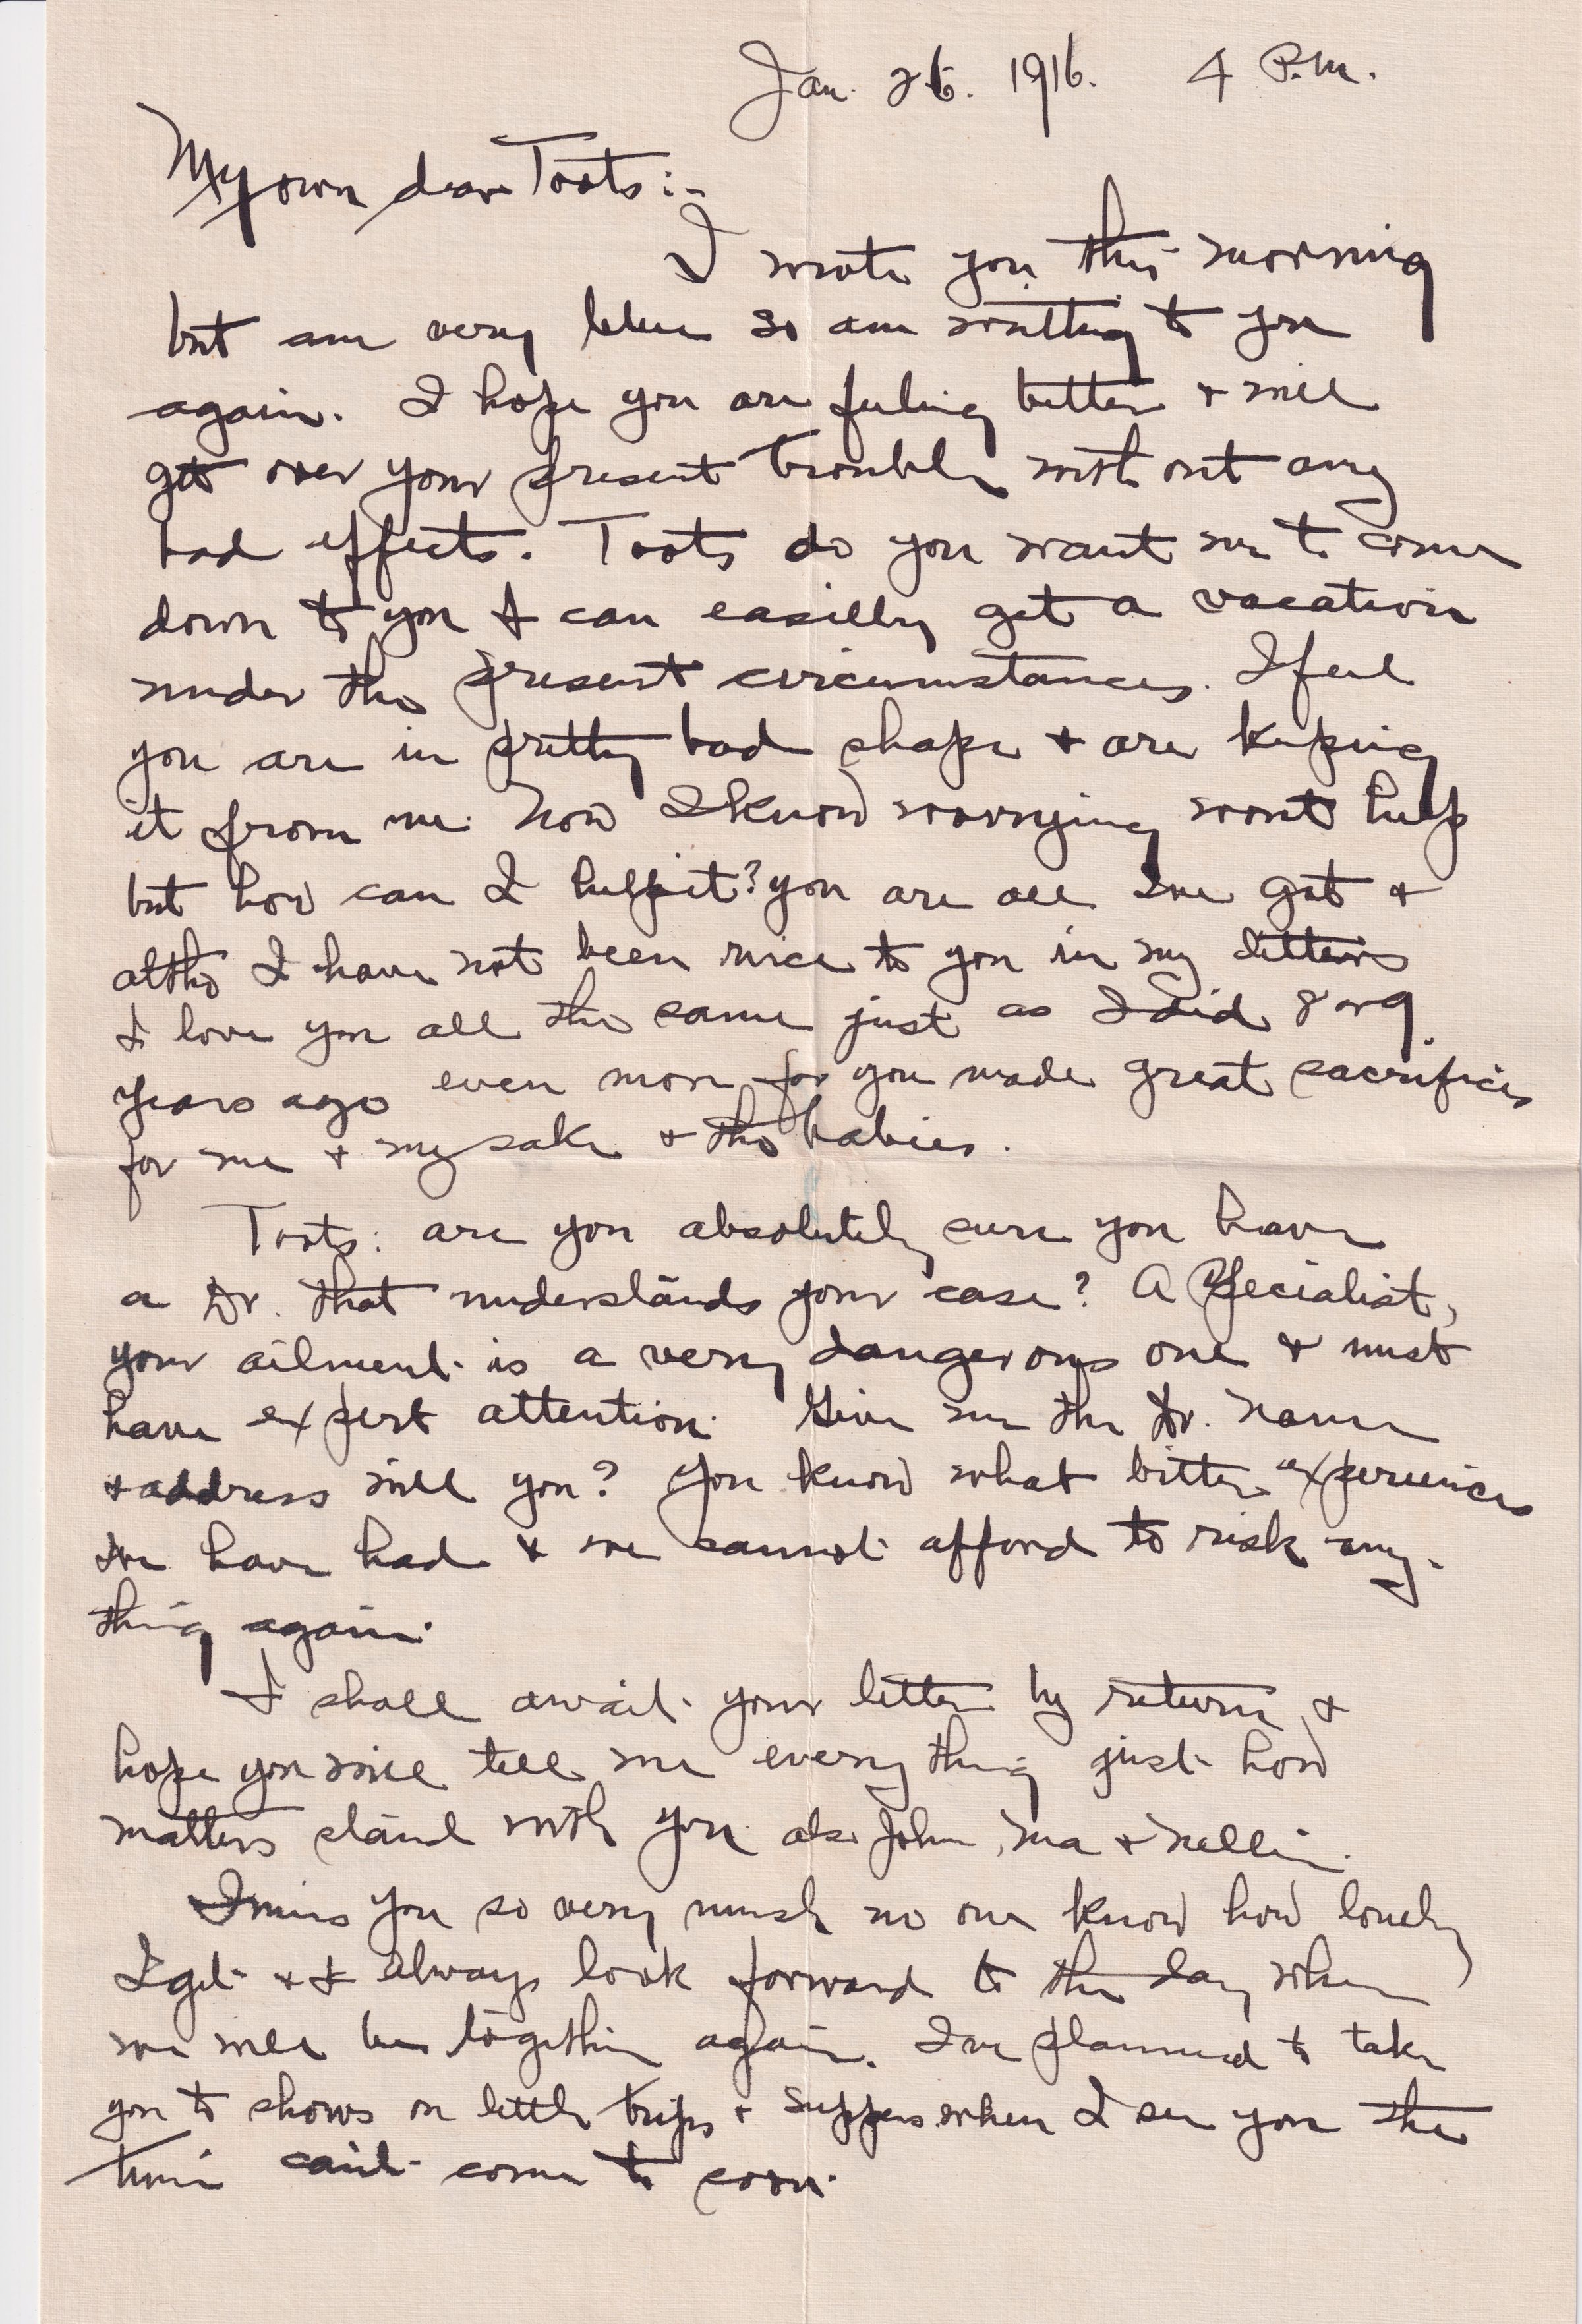 Jan. 26. 1916. 4 P.M.
My own dear Toots:-
I wrote you this morning
but am very blue so am writting to you
again. I hope you are feeling better & will
get over your present trouble with out any
bad effects. Toots do you want me to come
down to you I can easilly get a vacation
under the present circumstances. I feel
you are in pretty bad shape & are keeping
it from me. Now I know worrying wont help
but how can I help it? you are all Ive got &
altho I have not been nice to you in my letters
I love you all the same just as I did 8 or 9
years ago even more for you made great sacrifices
for me & my sake & the babies.
Toots: are you absolutely sure you have
a Dr. that understands your case? A Specialist,
your ailment is a very dangerous one & must
have expert attention. Give me the Dr. name
& address will you? You know what bitter experiences
we have had & we cannot afford to risk any-
thing again.
I shall await your letter by return &
hope you will tell me every thing just how
matters stand with you also John, Ma & Nellie.
I miss you so very much no one know how lonely
I get & I always look forward to the day when
we will be together again. I've planned to take
you to shows on little trips & suppers when I see you the
time can't come to soon.